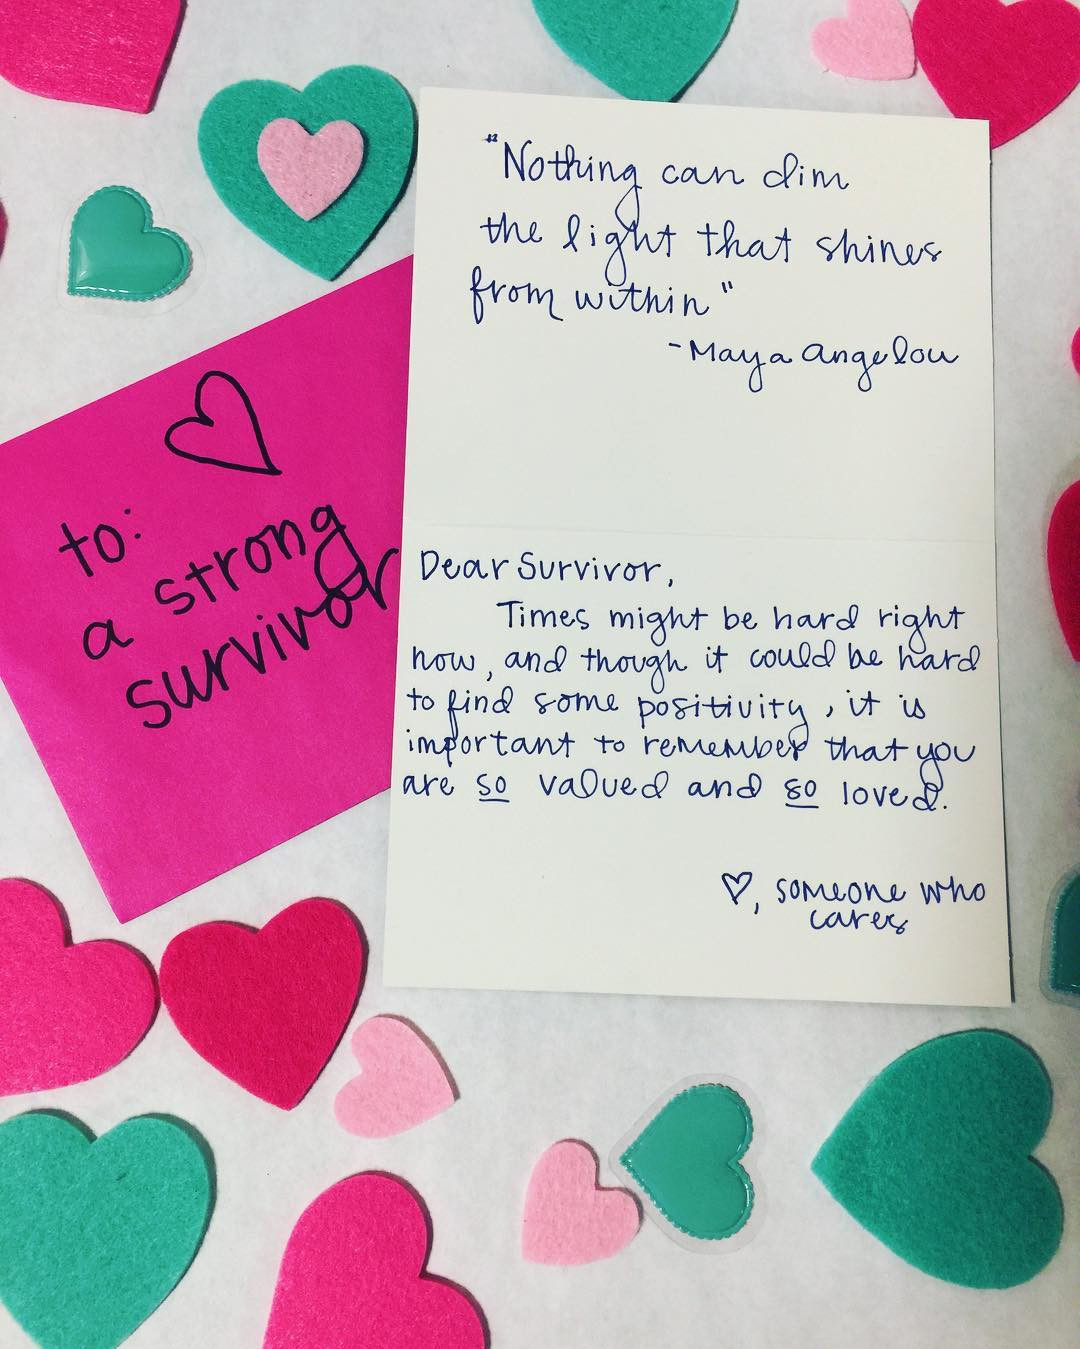 to:
a strong
survivor
"Nothing can dim
the light that shines
from within"
-Maya Angelou
Dear Survivor,
Times might be hard right
now, and though it could be hard
to find some positivity, it is
important to remember that you
are so valued and so loved.
♡, someone who
cares